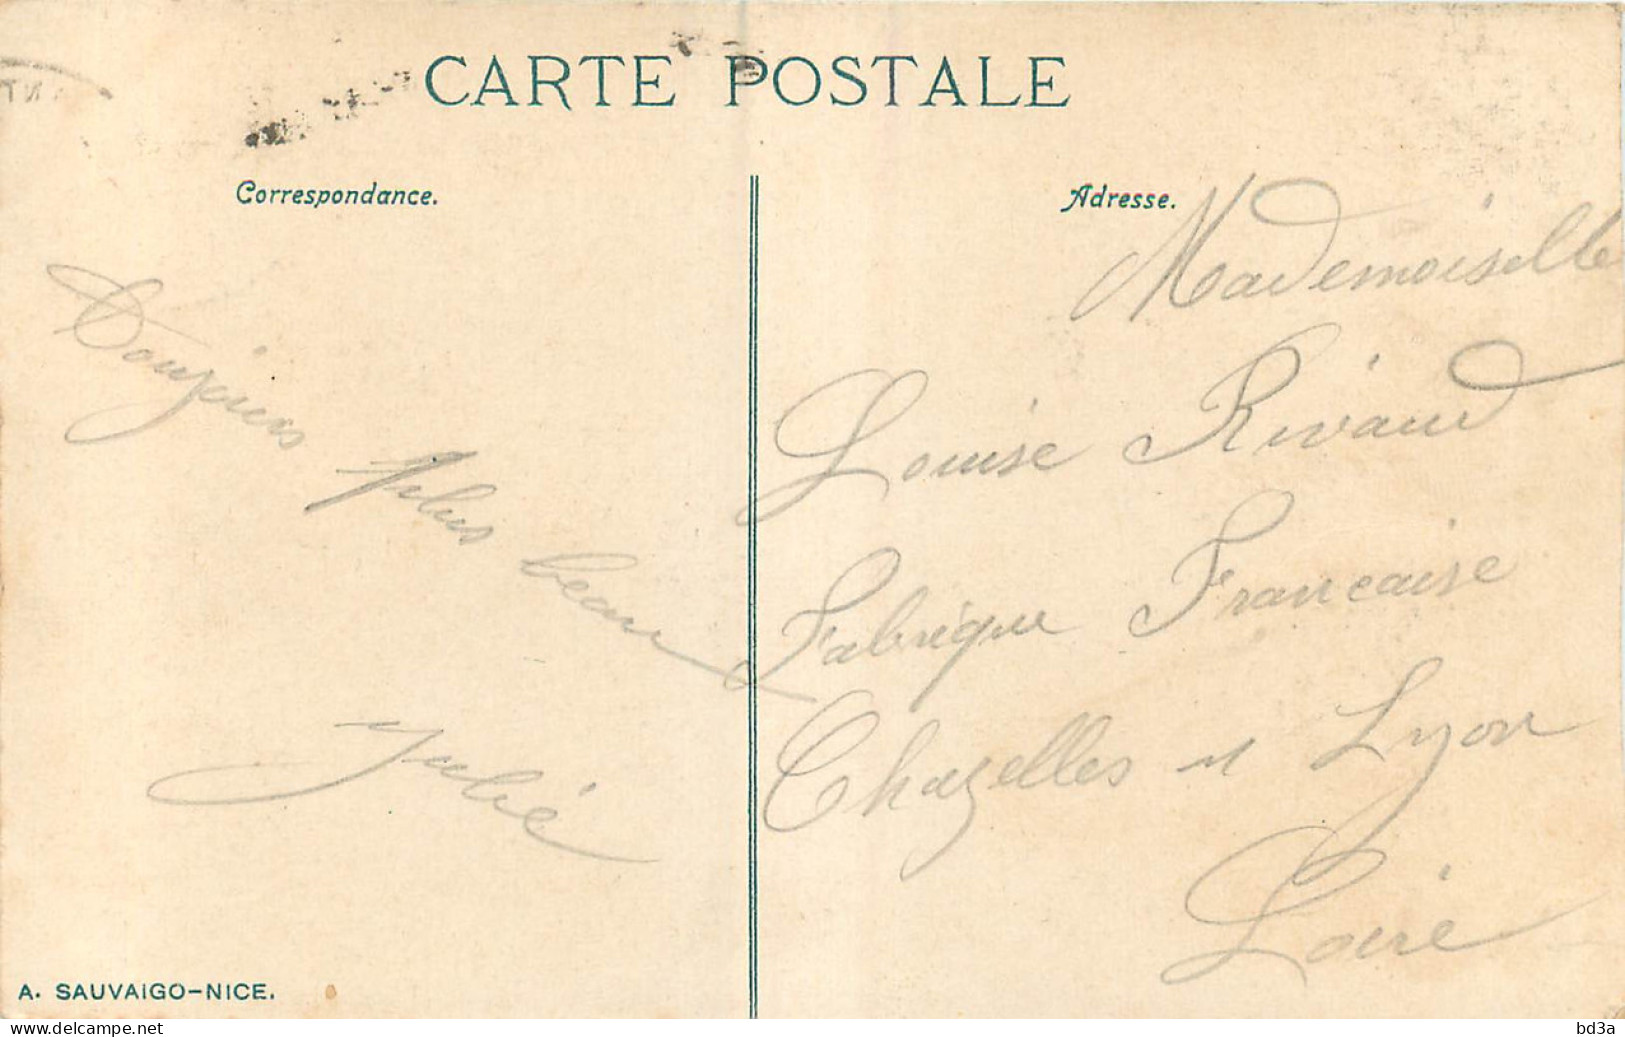 CARTE POSTALE
Correspondance.
Adresse.
Toujours plus beau
Julie
Mademoiselle
Louise Rivaud
Fabrique Francaise
Chazelles s Lyon
Loire
A. SAUVAIGO-NICE.
www.delcampe.net
bd3a